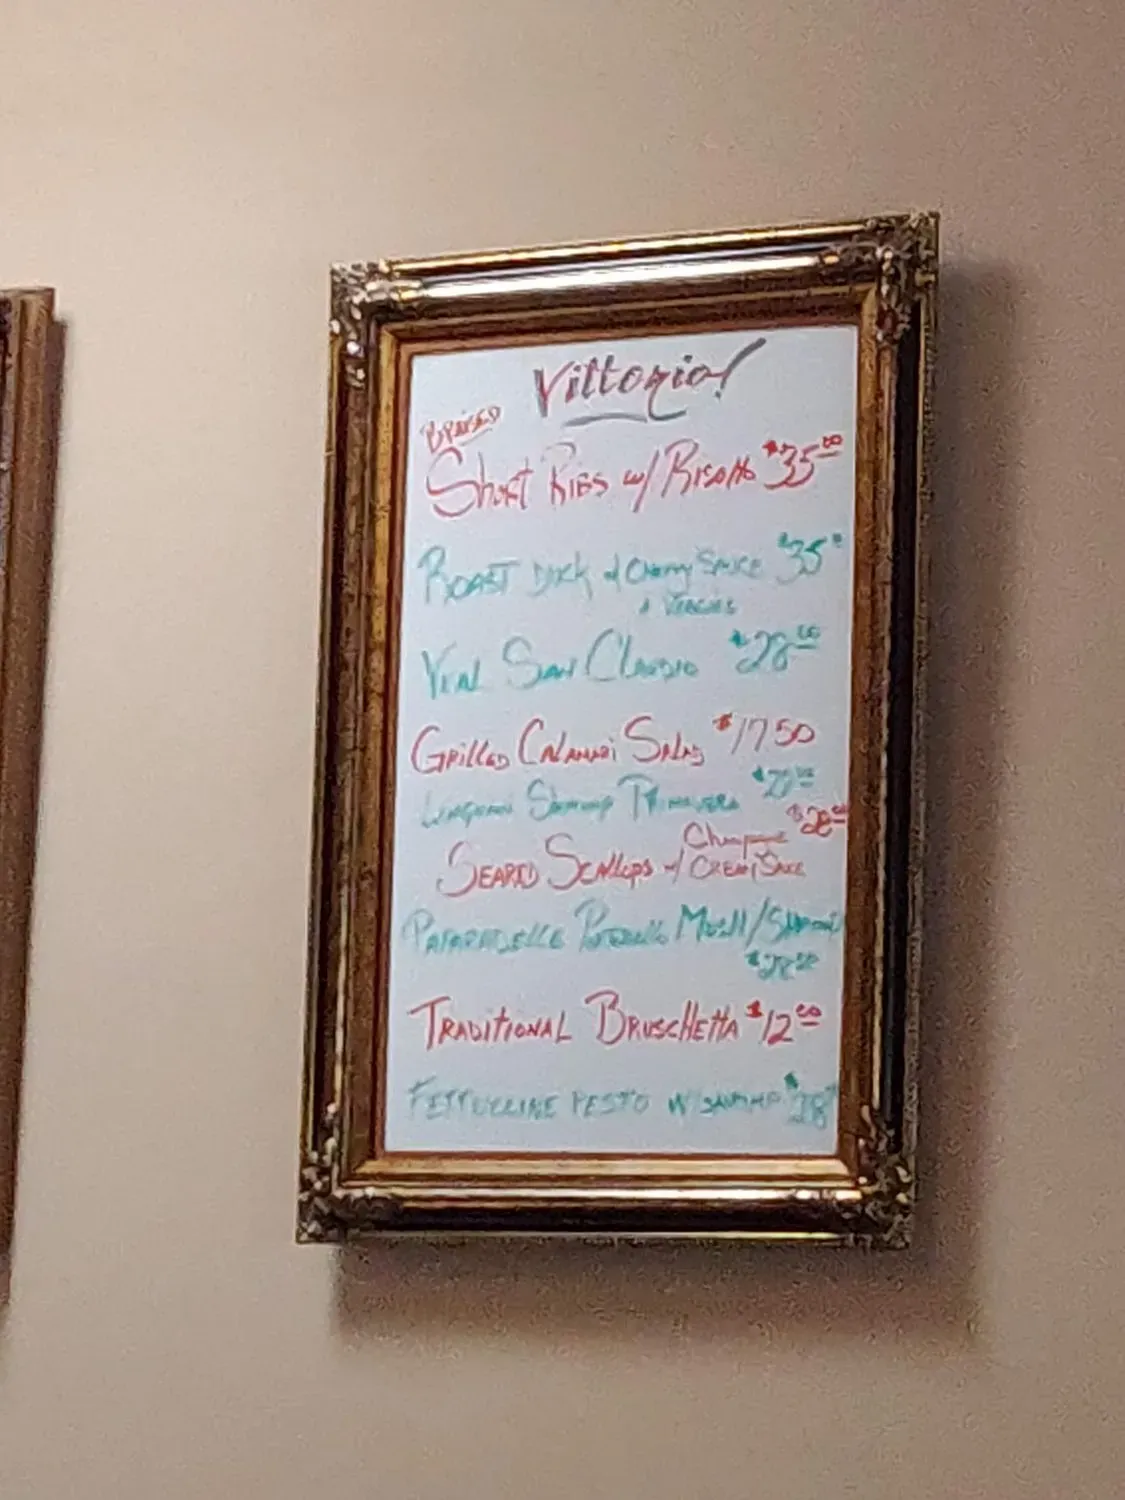 Vittorio!
BRAISED
Short Ribs w/ Risotto $35.00
Roast Duck w/ Cherry Sauce $35
& Veggies
Veal San Claudio $28.00
Grilled Calamari Salad $17.50
Linguini Shrimp Primavera
Champagne $28.00
Seared Scallops w/ Cream Sauce
Paparadelle Portobello Mush/Shrimp
$28.00
Traditional Bruschetta $12.00
Fettuccine Pesto w/ Shrimp $28